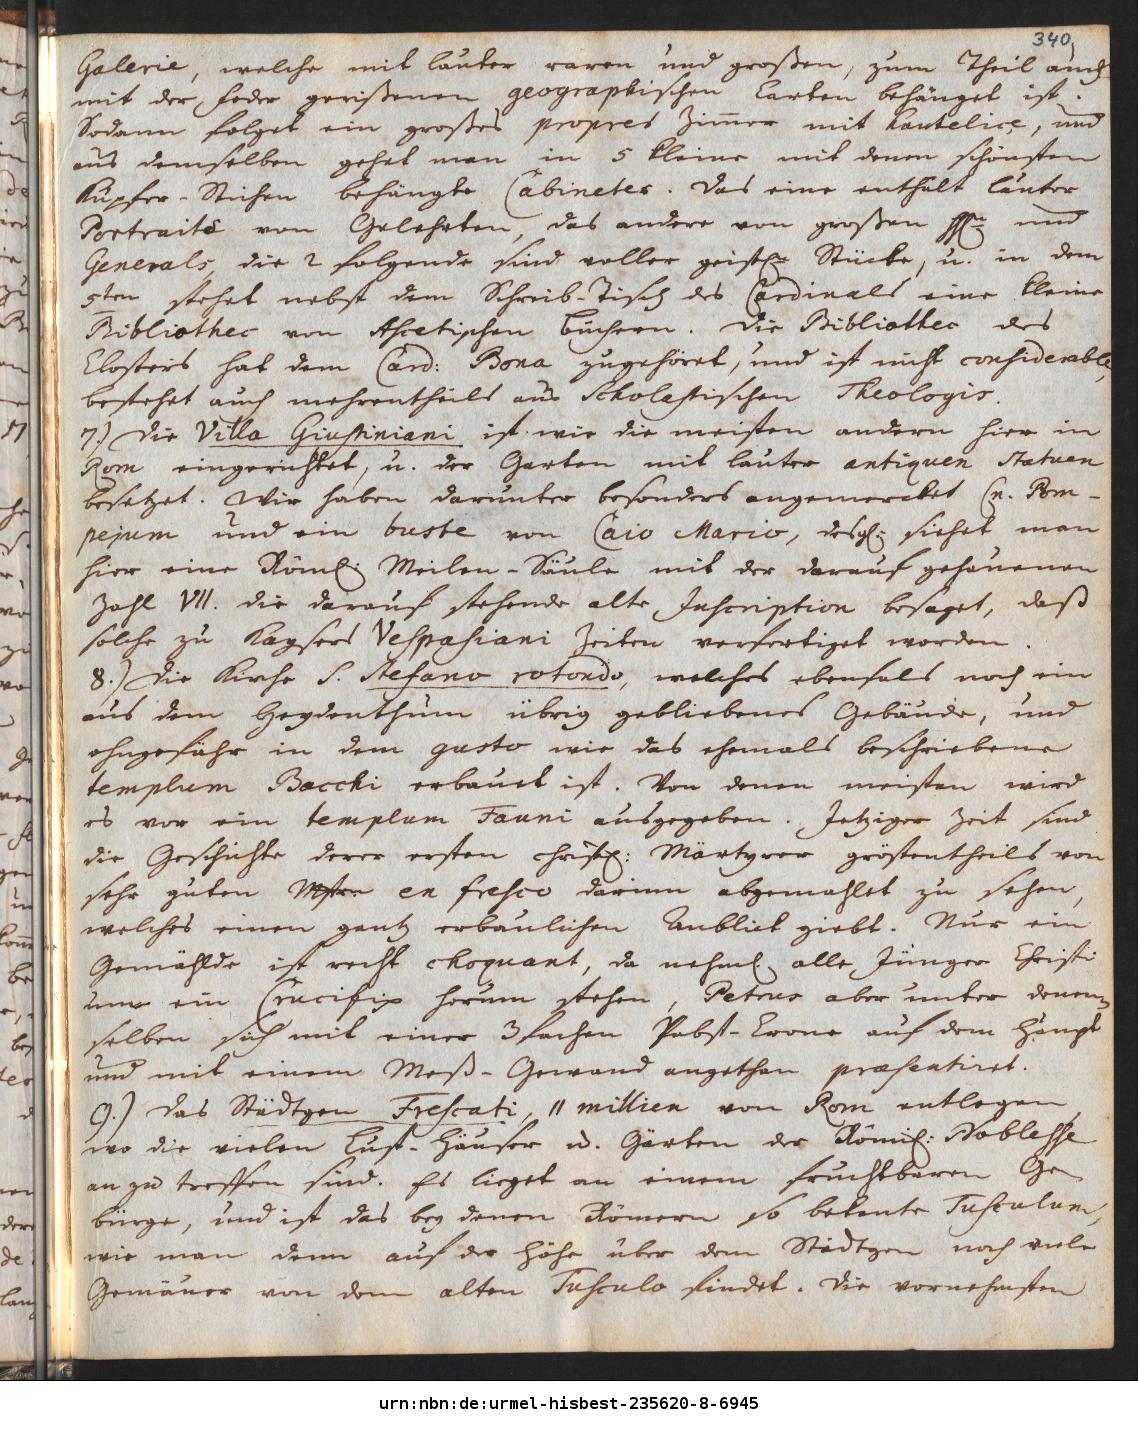 340
Galerie, welche mit lauter raren und großen, zum Theil auch
mit der Feder gerißenen geographischen Carten behänget ist.
Sodann folget ein großes propres Zimmer mit Hautelice, und
aus demselben gehet man in 5 kleine mit denen schönsten
Kupfer-Stichen behängte Cabineter. Das eine enthält lauter
Portraits von Gelehrten, das andere von großen und
Generals, die 2 folgende sind voller geistl. Stücke, u. in dem
5ten stehet nebst dem Schreib-Tisch des Cardinals eine kleine
Bibliothec von Ascetischen Büchern. Die Bibliothec des
Closters hat dem Card: Bona zugehöret, und ist nicht considerable,
bestehet auch mehrentheils aus Scholastischen Theologis.
7.) Die Villa Giustiniani ist wie die meisten andern hier in
Rom eingerichtet, u. der Garten mit lauter antiquen Statuen
besetzet. Wir haben darunter besonders angemercket Cn. Pom-
pejum und ein buste von Caio Mario, desgl: siehet man
hier eine Röml: Meilen-Säule mit der darauf gehauenen
Zahl VII. die darauf stehende alte Inscription besaget, daß
solche zu Kaysers Vespasiani Zeiten verfertiget worden.
8.) Die Kirche S. Stefano rotondo, welches ebenfals noch ein
aus dem Heydenthum übrig gebliebenes Gebäude, und
ohngefähr in dem gusto wie das ehemals beschriebene
templum Bacchi erbauet ist. Von denen meisten wird
es vor ein templum Fauni ausgegeben. Jetziger Zeit sind
die Geschichte derer ersten christl: Märtyrer gröstentheils von
sehr guten en fresco darinn abgemahlet zu sehen,
welches einen gantz erbaulichen Anblick giebt. Nur ein
Gemählde ist recht choquant, da nehml. alle Jünger Christi
um ein Crucifix herum stehen, Petrus aber unter denen-
selben sich mit einer 3fachen Pabst-Crone auf dem Haupt
und mit einem Meß-Gewand angethan præsentiret.
9.) Das Städtgen Frescati, 11 millien von Rom entlegen,
wo die vielen Lust-Häuser u. Gärten der Römil: Noblesse
anzutreffen sind. Es lieget an einem fruchtbaren Ge
bürge, und ist das bey denen Römern so bekante Tusculum,
wie man denn auf der Höhe über dem Städtgen noch viele
Gemäuer von dem alten Tusculo findet. Die vornehmsten
urn:nbn:de:urmel-hisbest-235620-8-6945